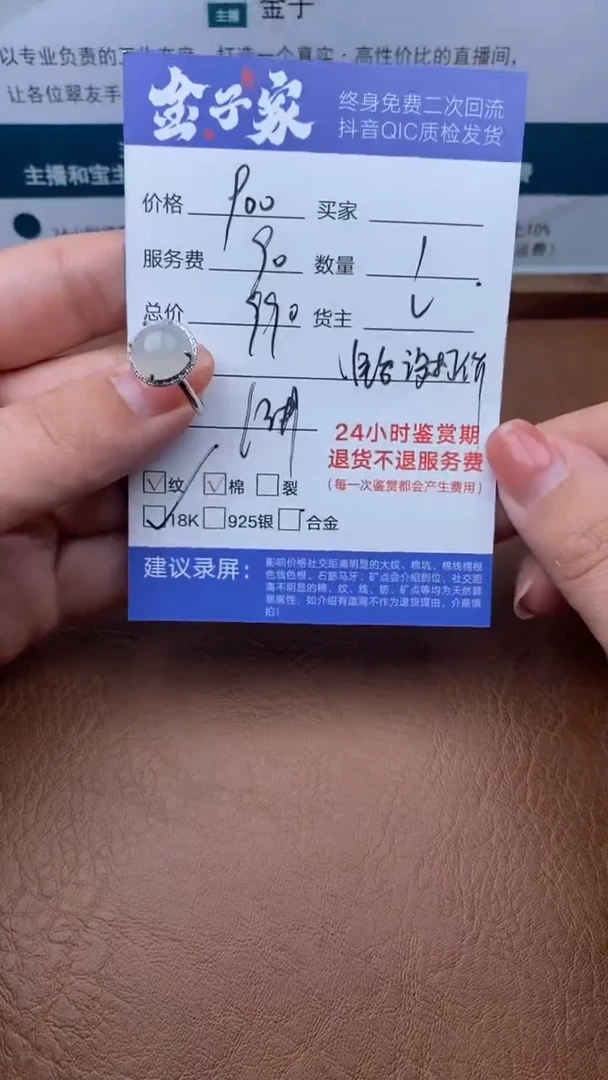 主播 金子
以专业负责的工作态度，打造一个真实·高性价比的直播间，
让各位翠友手
主播和宝主
24小时
金子家
终身免费二次回流
抖音QIC质检发货
价格 900 买家
服务费 90 数量 1
总价 990 货主
24小时鉴赏期
退货不退服务费
（每一次鉴赏都会产生费用）
纹 棉 裂
18K 925银 合金
建议录屏：
影响价格社交距离明显的大纹、棉坑、棉线棉根
色筋色根、石筋马牙、矿点会介绍到位，社交距
离不明显的棉、纹、线、筋、矿点等均为天然翡
翠属性，如介绍有遗漏不作为退货理由，介意慎
拍！